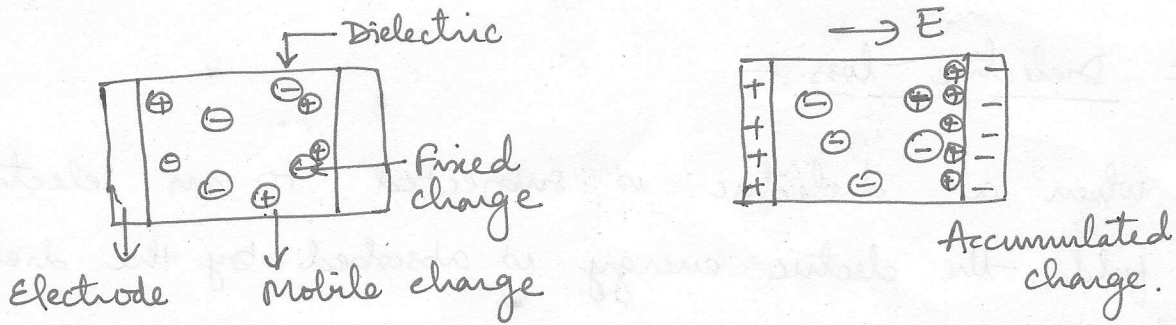 Dielectric
→ E
Fixed
charge
Electrode
Mobile charge
Accumulated
charge.